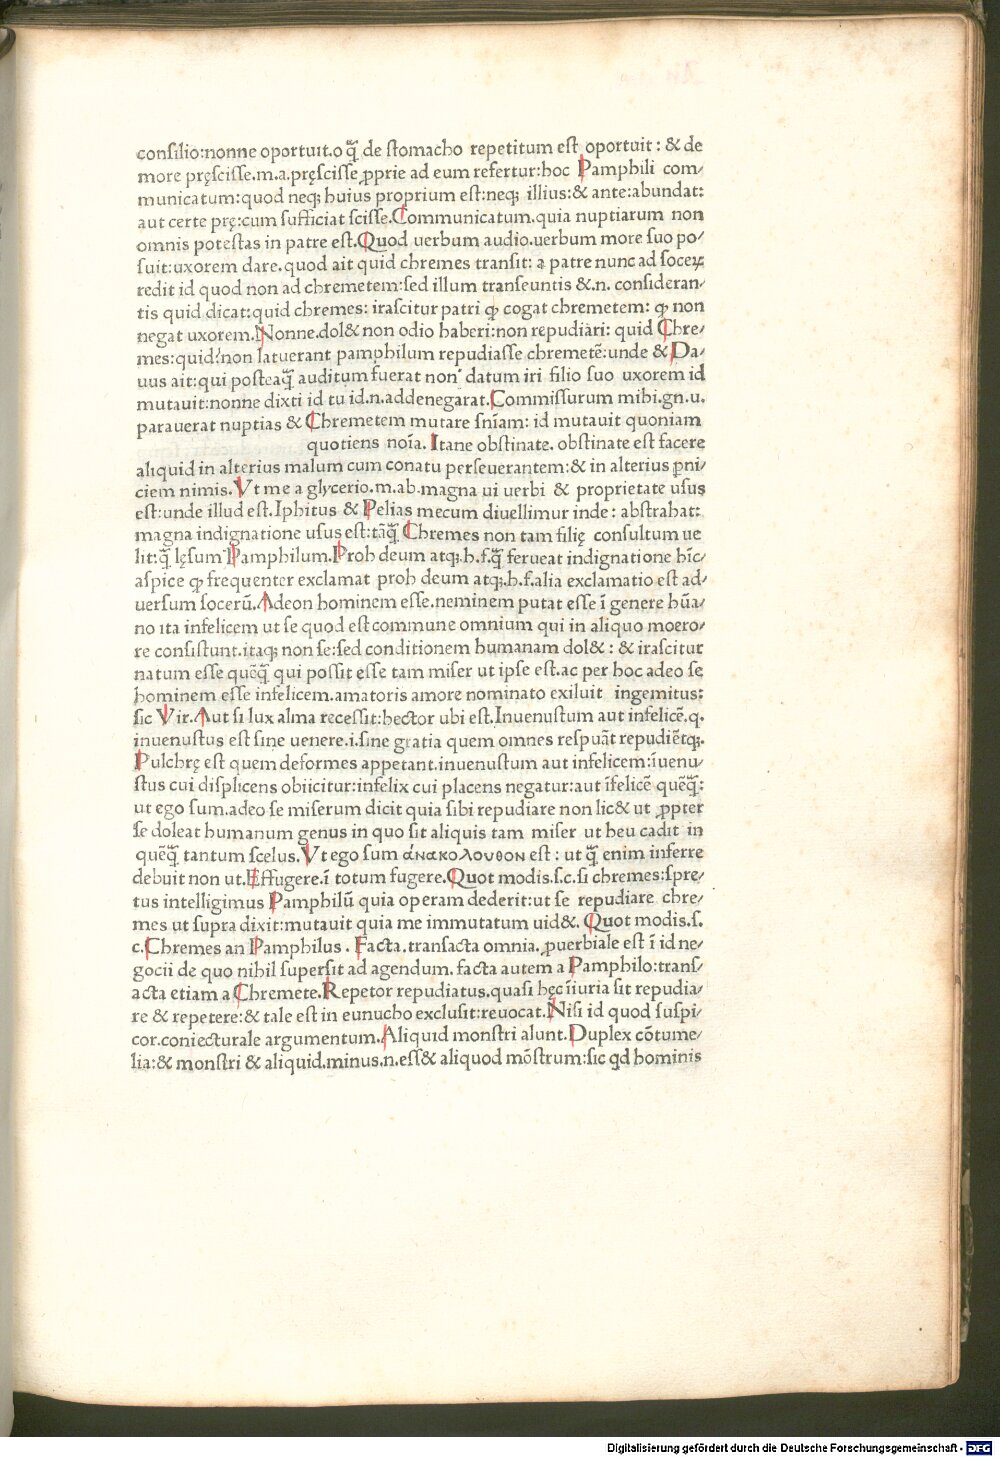 consilio:nonne oportuit.o q̃ de stomacho repetitum est oportuit : & de
more pręscisse.m.a.pręscisse ꝓprie ad eum refertur:hoc Pamphili com/
municatum:quod neqꝫ huius proprium est:neqꝫ illius:& ante:abundat:
aut certe prę:cum sufficiat scisse.Communicatum.quia nuptiarum non
omnis potestas in patre est.Quod uerbum audio.uerbum more suo po/
suit:uxorem dare.quod ait quid chremes transit: a patre nunc ad soceꝝ
redit id quod non ad chremetem:sed illum transeuntis &.n. consideran/
tis quid dicat:quid chremes: irascitur patri ꝙ cogat chremetem: ꝙ non
negat uxorem.Nonne.dol& non odio haberi:non repudiari: quid Chre/
mes:quid?non latuerant pamphilum repudiasse chremetẽ:unde & Da/
uus ait:qui posteaq̃ auditum fuerat non datum iri filio suo uxorem id
mutauit:nonne dixti id tu id.n.addenegarat.Commissurum mihi.gn.u.
parauerat nuptias & Chremetem mutare sñiam: id mutauit quoniam
quotiens noĩa. Itane obstinate. obstinate est facere
aliquid in alterius malum cum conatu perseuerantem:& in alterius ꝑni/
ciem nimis.Vt me a glycerio.m.ab.magna ui uerbi & proprietate usus
est:unde illud est.Iphitus & Pelias mecum diuellimur inde : abstrahat:
magna indignatione usus est:tãq̃ Chremes non tam filię consultum ue
lit:q̃ lęsum Pamphilum.Proh deum atqꝫ.h.f.q̃ ferueat indignatione hĩc
aspice ꝙ frequenter exclamat proh deum atqꝫ.h.f.alia exclamatio est ad/
uersum socerũ.Adeon hominem esse.neminem putat esse ĩ genere hũa/
no ita infelicem ut se quod est commune omnium qui in aliquo moero/
re consistunt.itaqꝫ non se:sed conditionem humanam dol& : & irascitur
natum esse quẽq̃ qui possit esse tam miser ut ipse est.ac per hoc adeo se
hominem esse infelicem.amatoris amore nominato exiluit ingemitus:
sic Vir.Aut si lux alma recessit:hector ubi est.Inuenustum aut infelicẽ.q.
inuenustus est sine uenere.i.sine gratia quem omnes respuãt repudiẽtqꝫ.
Pulchrę est quem deformes appetant.inuenustum aut infelicem:ĩuenu/
stus cui displicens obiicitur:infelix cui placens negatur:aut ĩfelicẽ quẽq̃:
ut ego sum.adeo se miserum dicit quia sibi repudiare non lic& ut ꝓpter
se doleat humanum genus in quo sit aliquis tam miser ut heu cadit in
quẽq̃ tantum scelus.Vt ego sum ἀνακολουθον est : ut q̃ enim inferre
debuit non ut.Effugere.ĩ totum fugere.Quot modis.s.c.si chremes:spre/
tus intelligimus Pamphilũ quia operam dederit:ut se repudiare chre/
mes ut supra dixit:mutauit quia me immutatum uid&. Quot modis.s.
c.Chremes an Pamphilus . Facta.transacta omnia. ꝓuerbiale est ĩ id ne/
gocii de quo nihil supersit ad agendum. facta autem a Pamphilo:trans/
acta etiam a Chremete.Repetor repudiatus.quasi hęc ĩiuria sit repudia/
re & repetere:& tale est in eunucho exclusit:reuocat.Nisi id quod suspi/
cor.coniecturale argumentum.Aliquid monstri alunt.Duplex cõtume/
lia:& monstri & aliquid.minus.n.ess& aliquod mõstrum:sic qd hominis
Digitalisierung gefördert durch die Deutsche Forschungsgemeinschaft - DFG